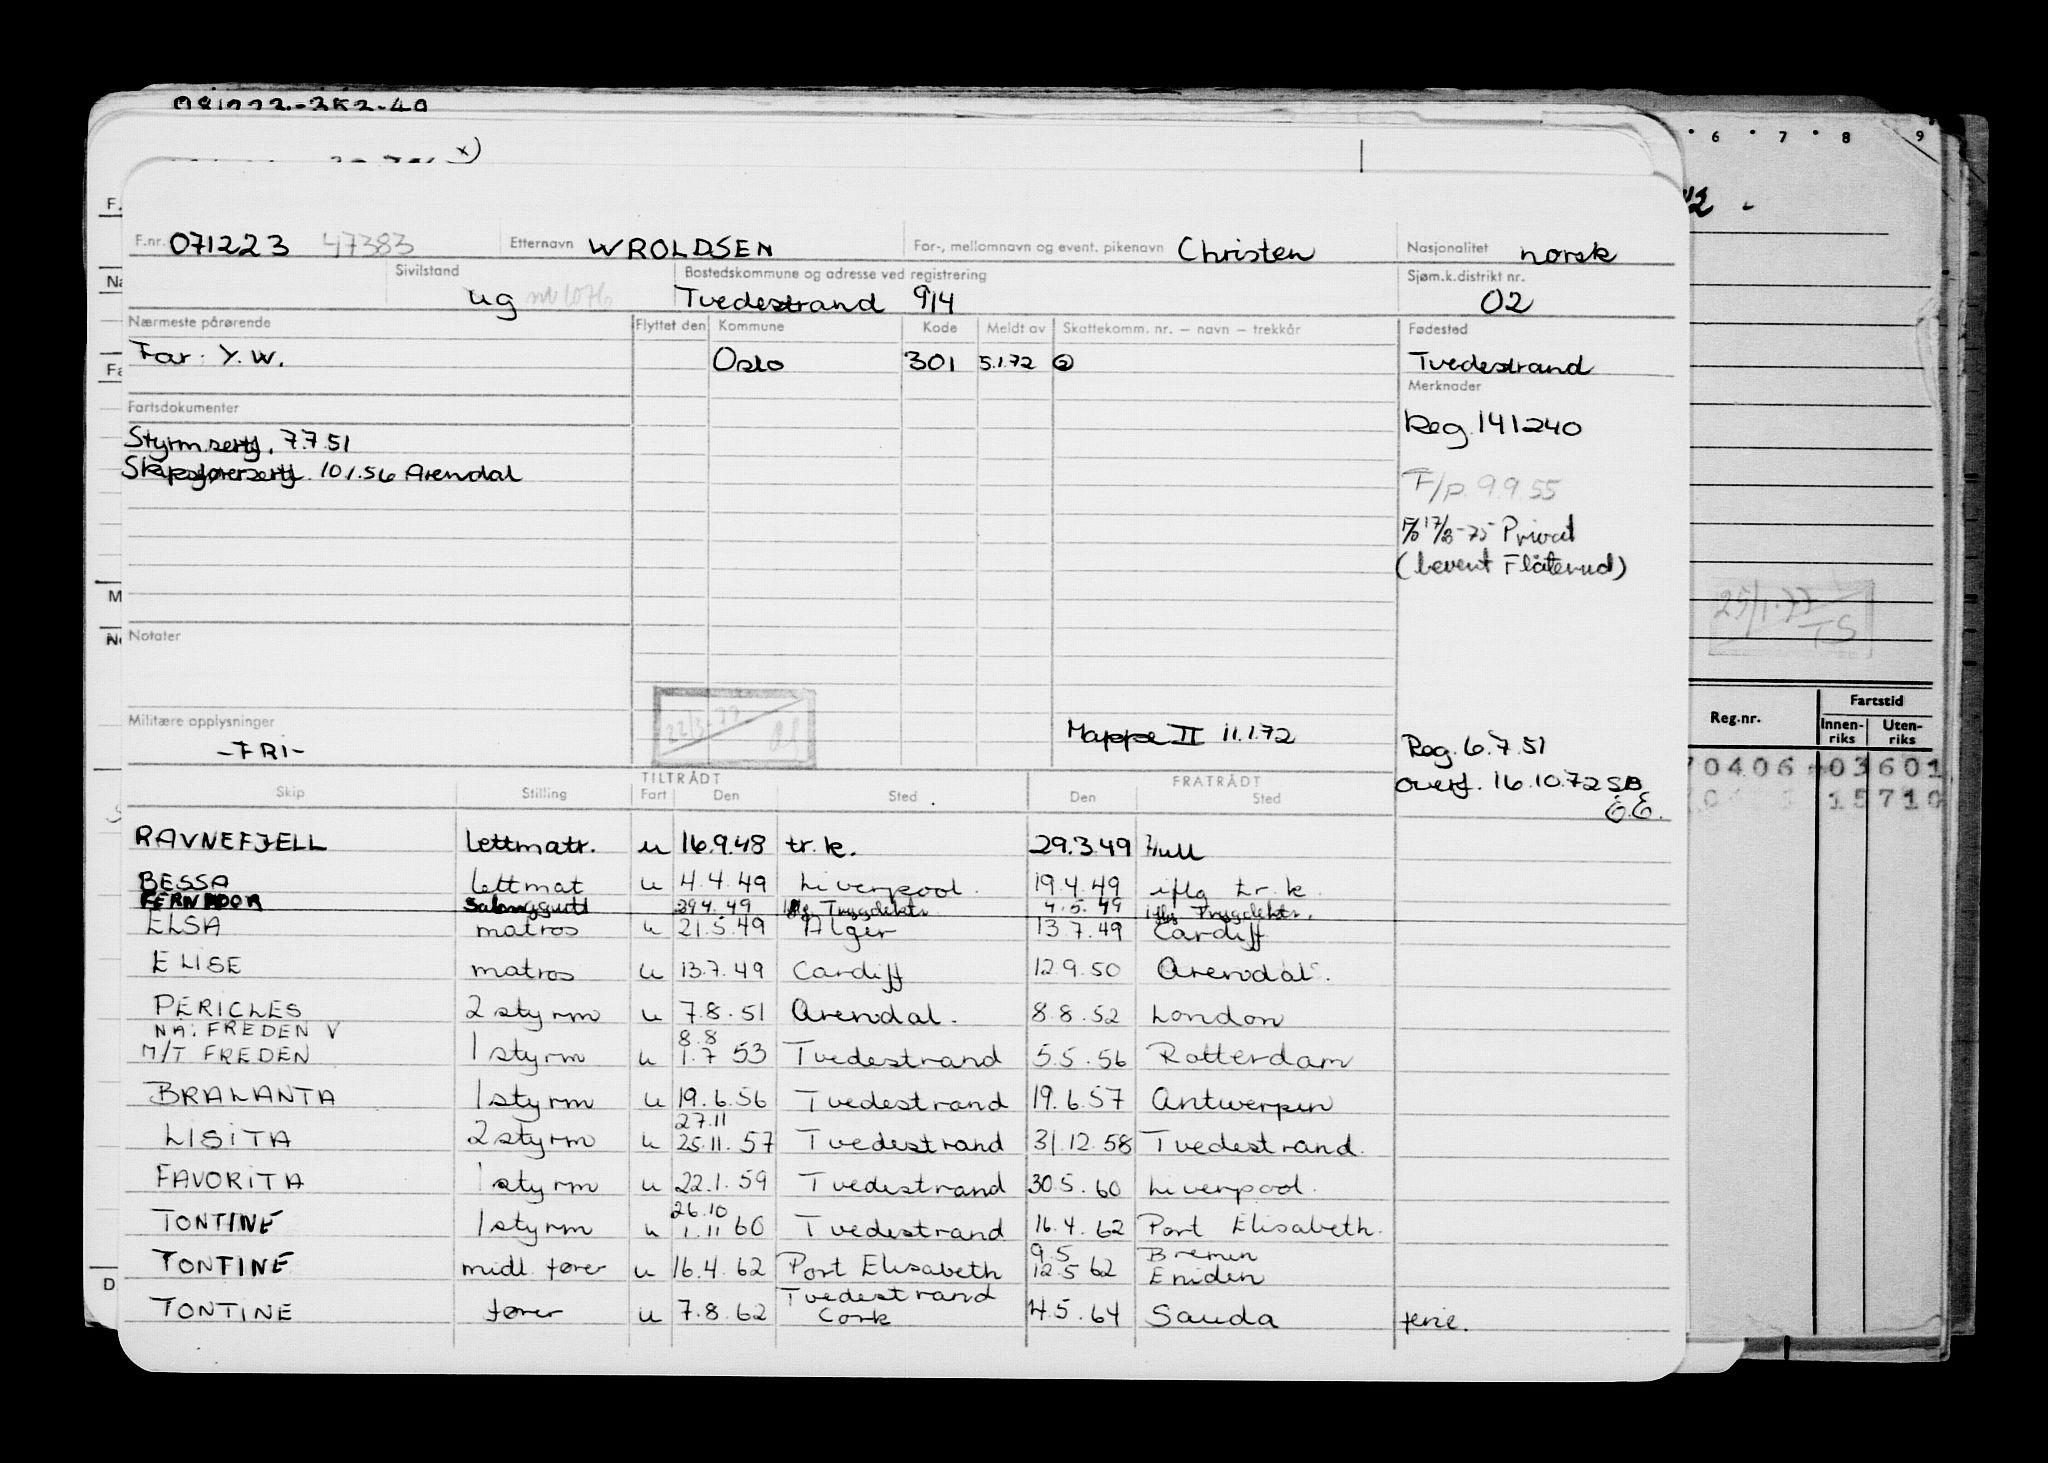 6 7 8 9
F.nr. 071223 47383 Etternavn WROLDSEN For-, mellomnavn og event. pikenavn Christen Nasjonalitet norsk
Sivilstand ug Bostedskommune og adresse ved registrering Tvedestrand 914 Sjøm.k.distrikt nr. 02
Nærmeste pårørende Flyttet den Kommune Kode Meldt av Skattekomm. nr. – navn – trekkår Fødested
Far: Y. W. Oslo 301 5.1.72 Tvedestrand
Merknader
Fartsdokumenter
Reg. 141240
Styrm.sertf. 7.7.51
Skipsførersertf. 10.1.56 Arendal
F/p. 9.9.55
F/p 17/8-75 Privat
(bevent Flåterud)
25/1-77
TS
Notater
Militære opplysninger
-FRI-
Mappe II 11.1.72
Reg. 6.7.51
Overf. 16.10.72 SB
E.E.
Reg.nr. Fartstid
Innen-riks Uten-riks
70406 03601
15710
TILTRÅDT FRATRÅDT
Skip Stilling Fart Den Sted Den Sted
RAVNEFJELL lettmatr. u 16.9.48 tr.k. 29.3.49 Hull
BESSA lettmat u 4.4.49 Liverpool. 19.4.49 iflg tr.k.
FERNMOOR Salonggutt 29.4.49 iflg. Trygdektr. 4.5.49 iflg Trygdektr.
ELSA matros u 21.5.49 Alger 13.7.49 Cardiff
ELISE matros u 13.7.49 Cardiff 12.9.50 Arendal.
PERICLES 2 styrm u 7.8.51 Arendal. 8.8.52 London
NA: FREDEN V 8.8
M/T FREDEN 1 styrm u 1.7 53 Tvedestrand 5.5.56 Rotterdam
BRALANTA 1 styrm u 19.6.56 Tvedestrand 19.6.57 Antwerpen
27.11
LISITA 2 styrm u 25.11.57 Tvedestrand 31.12.58 Tvedestrand.
FAVORITA 1 styrm u 22.1.59 Tvedestrand 30.5.60 Liverpool.
26.10
TONTINE 1 styrm u 1.11 60 Tvedestrand 16.4.62 Port Elisabeth.
9.5 Bremen
TONTINE midl. fører u 16.4.62 Port Elisabeth 12.5 62 Emden
Tvedestrand
TONTINE fører u 7.8.62 Cork 4.5.64 Sauda ferie.